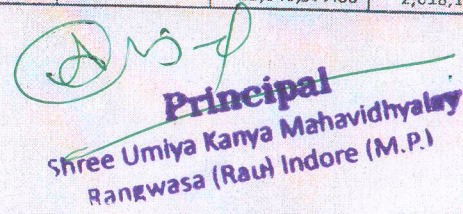 Principal
Shree Umiya Kanya Mahavidhyalay
Rangwasa (Rau) Indore (M.P.)